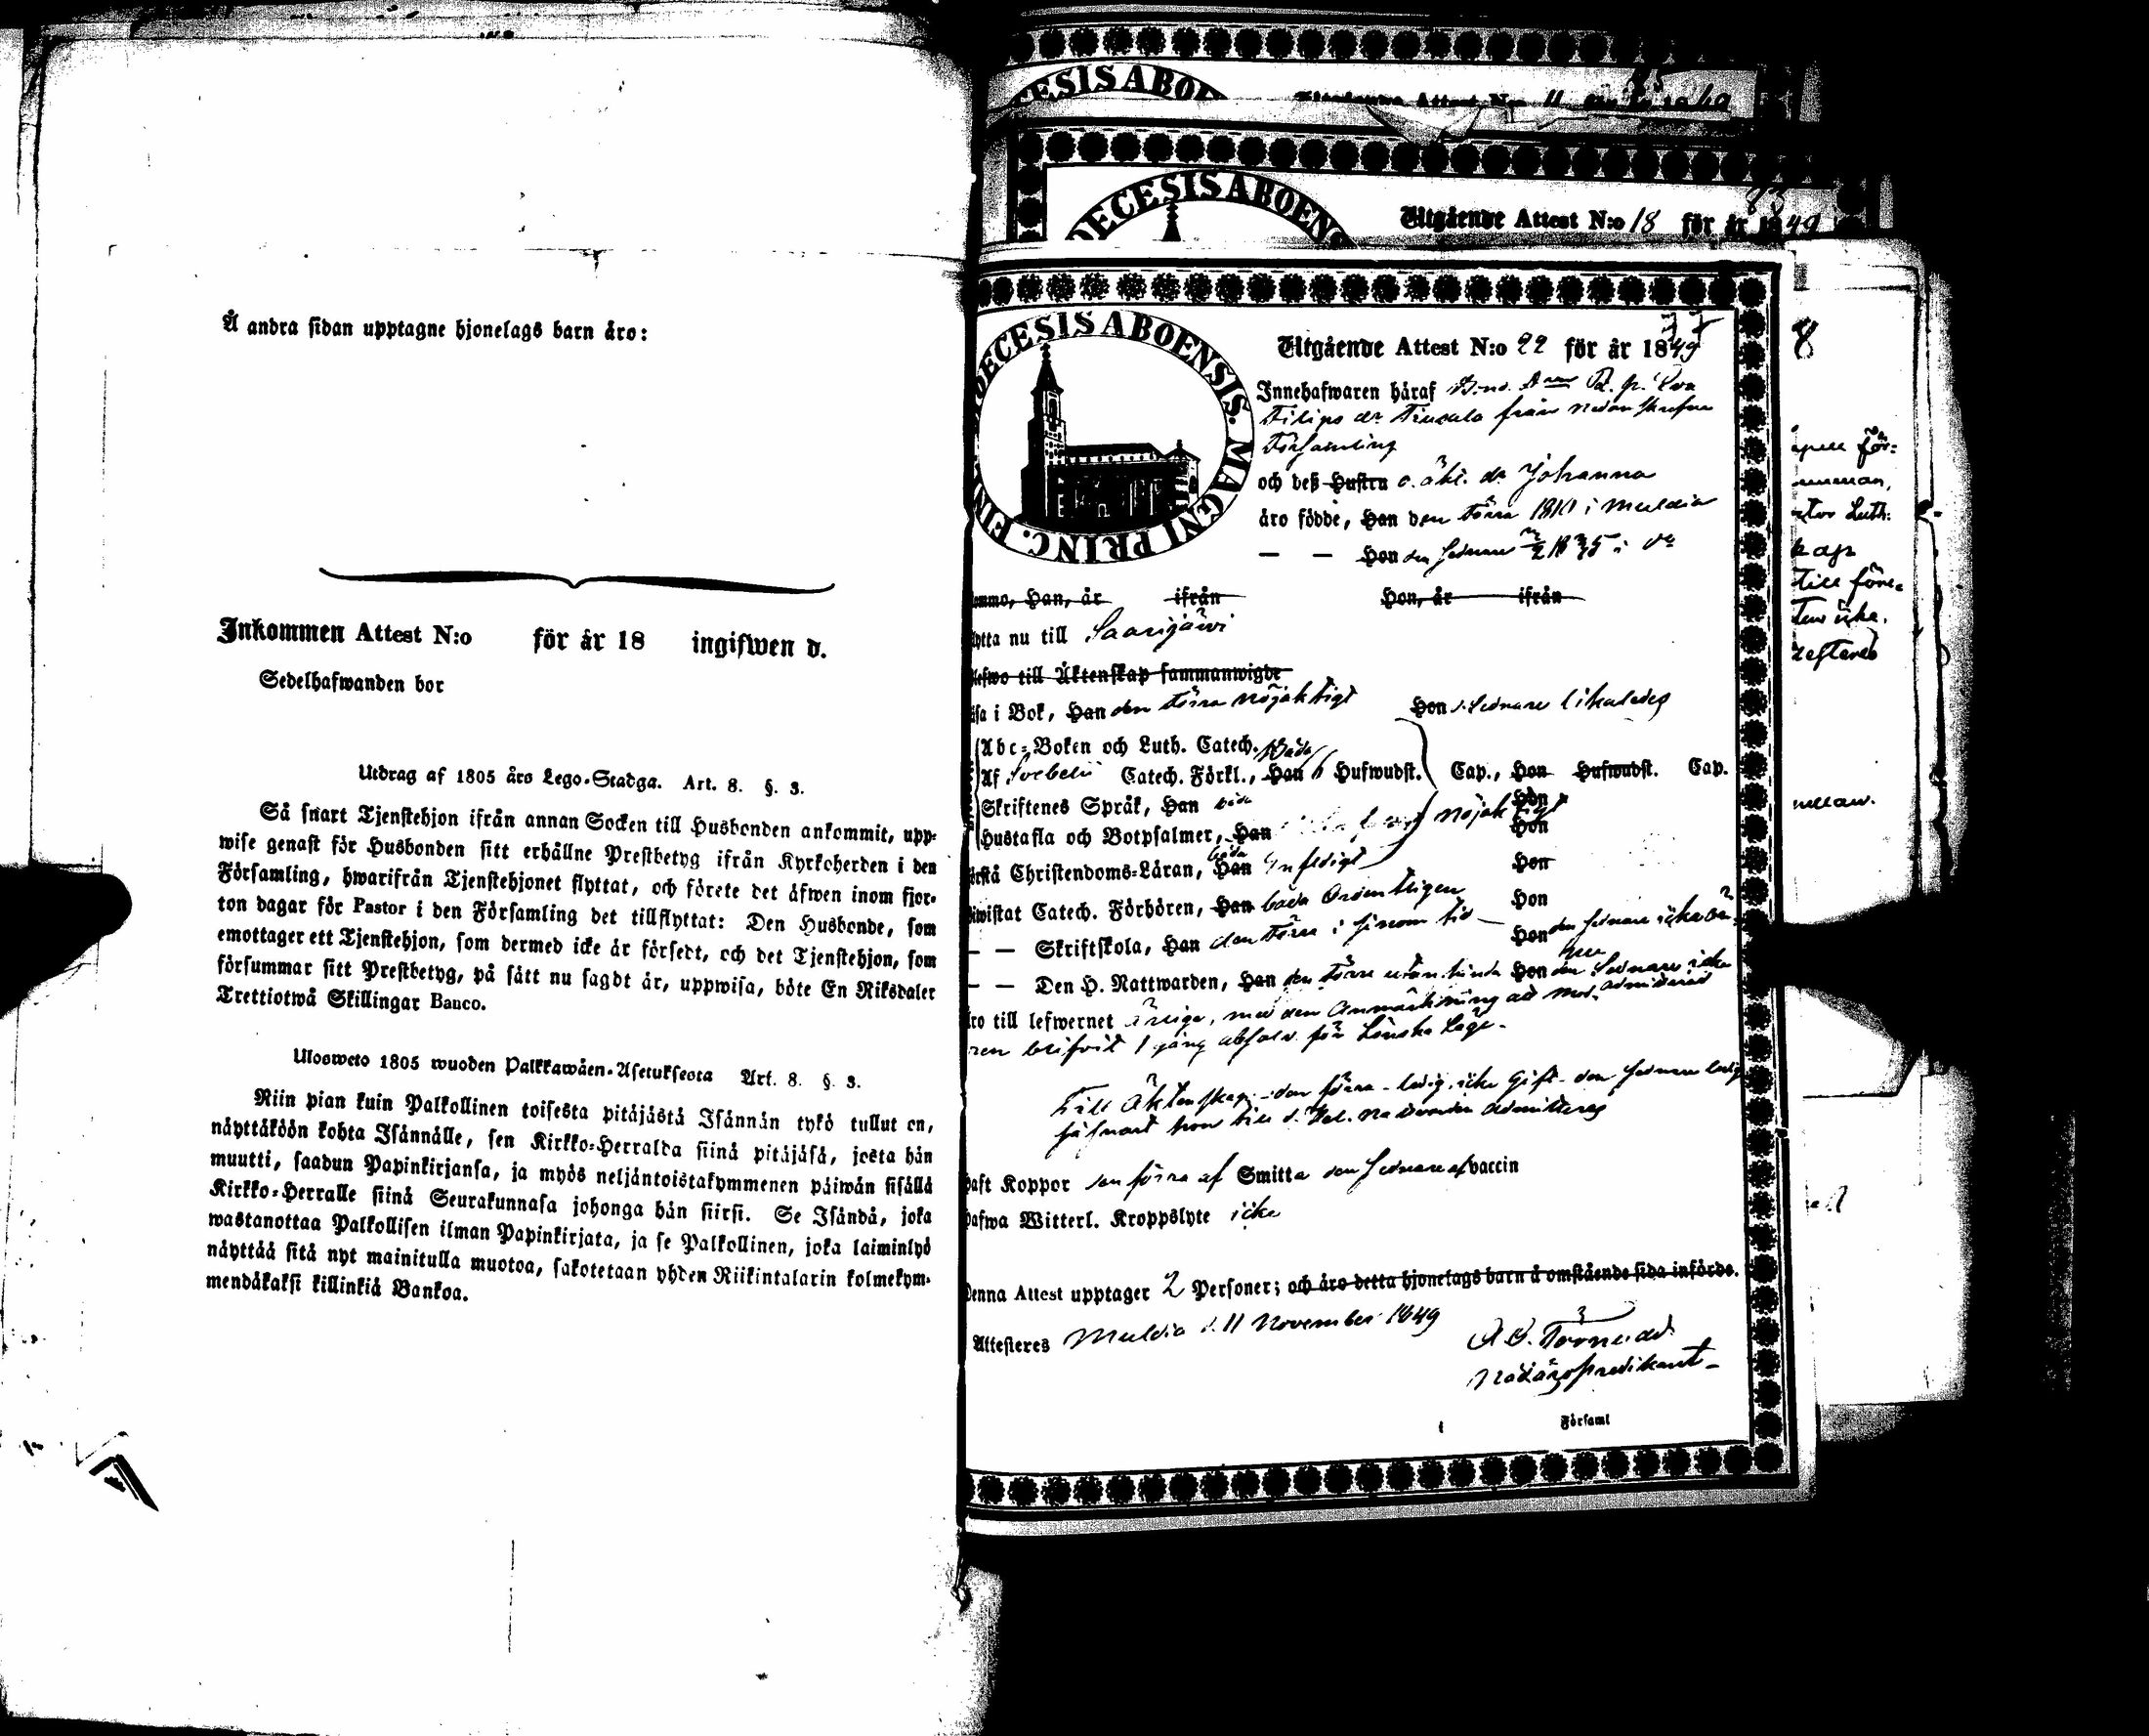 Å andra sidan upptagne hjonelags barn äro:
Inkommen Attest N:o för år 18 ingifwen d.
Sedelhafwanden bor
Utdrag af 1805 års Lego-Stadga. Art. 8. §. 3.
Så snart Tjenstehjon ifrån annan Socken till Husbonden ankommit, upp-
wise genast för Husbonden sitt erhållne Prestbetyg ifrån Kyrkoherden i den
Församling, hwarifrån Tjenstehjonet flyttat, och förete det äfwen inom fjor-
ton dagar för Pastor i den Församling det tillflyttat: Den Husbonde, som
emottager ett Tjenstehjon, som dermed icke är försedt, och det Tjenstehjon, som
försummar sitt Prestbetyg, på sätt nu sagdt är, uppwisa, böte En Riksdaler
Trettiotwå Skillingar Banco.
Uloswcto 1805 wuoden Palkkawäen-Asetuksesta Art. 8. §. 3.
Niin pian kuin Palkollinen toisesta pitäjästä Isännän tykö tullut on,
näyttäköön kohta Isännälle, sen Kirkko-Herralda siinä pitäjäsä, josta hän
muutti, saadun Papinkirjansa, ja myös neljäntoistakymmenen päiwän sisällä
Kirkko-Herralle siinä Seurakunnasa johonga hän siirsi. Se Isändä, joka
wastanottaa Palkollisen ilman Papinkirjata, ja se Palkollinen, joka laiminlyö
näyttää sitä nyt mainitulla muotoa, sakotetaan yhden Riikintalarin kolmekym-
mendäkaksi killinkiä Bankoa.
ECESIS ABOE
Attest N:o 11
DECESIS ABOENS
Utgående Attest N:o 18 för år 1849
DIOECESIS ABOENSIS. MAGNI PRINC. FIN
Utgående Attest N:o 22 för år 1849
Innehafwaren häraf Eva
Filips dr från nedanskrefne
Församling
och deß Hustru o. äkt. dr Johanna
äro födde, Han den förra 1810 i Muldia
— — Hon den sednare 1835 i do
ommo, Han, år ifrån Hon, år ifrån
lytta nu till Saarijärvi
lefwo till Äktenskap sammanwigde
äsa i Bok, Han den förra nöjaktigt Hon d. sednare likaledes
Abc-Boken och Luth. Catech. båda
Af Svebelii Catech. Förkl., Han 6 Hufwudst. Cap., Hon Hufwudst. Cap.
Skriftenes Språk, Han båda Hon
Hustafla och Botpsalmer, Han nöjaktigt Hon
örstå Christendoms-Läran, Han båda Enfeldigt Hon
iwistat Catech. Förhören, Han båda Ordentligen Hon
— — Skriftskola, Han den förra i sinom tid — Hon den sednare icke än-
nu
— — Den H. Nattwarden, Han den förre utan hinder Hon den Sednare icke
admitterad
ro till lefwernet ärliga, med den Anmärkning at mod-
ren 1 gång absolv. för Lönska Läge.
Till Äktenskap — den förra — ledig, icke Gift — den sednare ledig
så snart hon till d. Hel. Nattvarden admitteras
haft Koppor den förra af Smitta den sednare af vaccin
hafwa Witterl. Kroppslyte icke
Denna Attest upptager 2 Personer; och äro detta hjonelags barn å omstående sida införde.
Attesteres Muldia d. 11 November 1849
Nådårspredikant
Församl
8
för:
Luth:
till före-
icke.